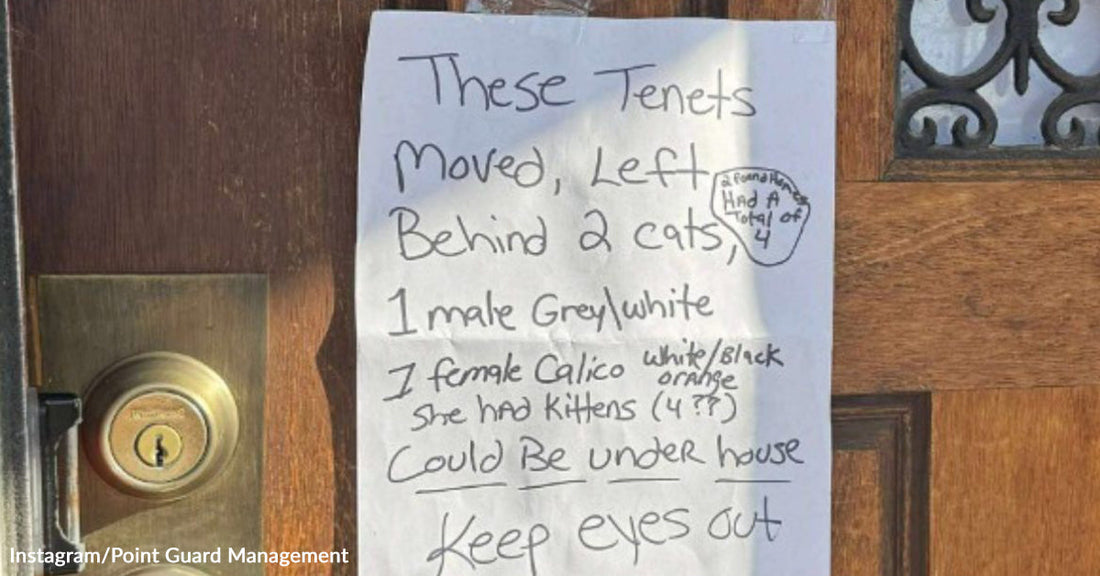 These Tenets
Moved, Left
Behind 2 cats,
2 Found
HAD A
Total of
4
1 male Grey\white
1 female Calico white/Black
orange
She hAD Kittens (4 ??)
Could Be under house
Keep eyes out
Instagram/Point Guard Management